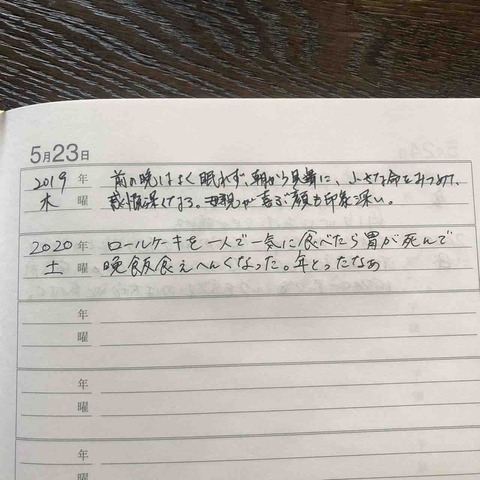 5月23日
2019年 前の晩はよく眠れず、朝から見舞に、小さな命をみつめて、
木曜 感慨深くなる。母親が喜ぶ顔も印象深い。
2020年 ロールケーキを一人で一気に食べたら胃が死んで
土曜 晩飯食えへんくなった。年とったなぁ
年
曜
年
曜
年
曜